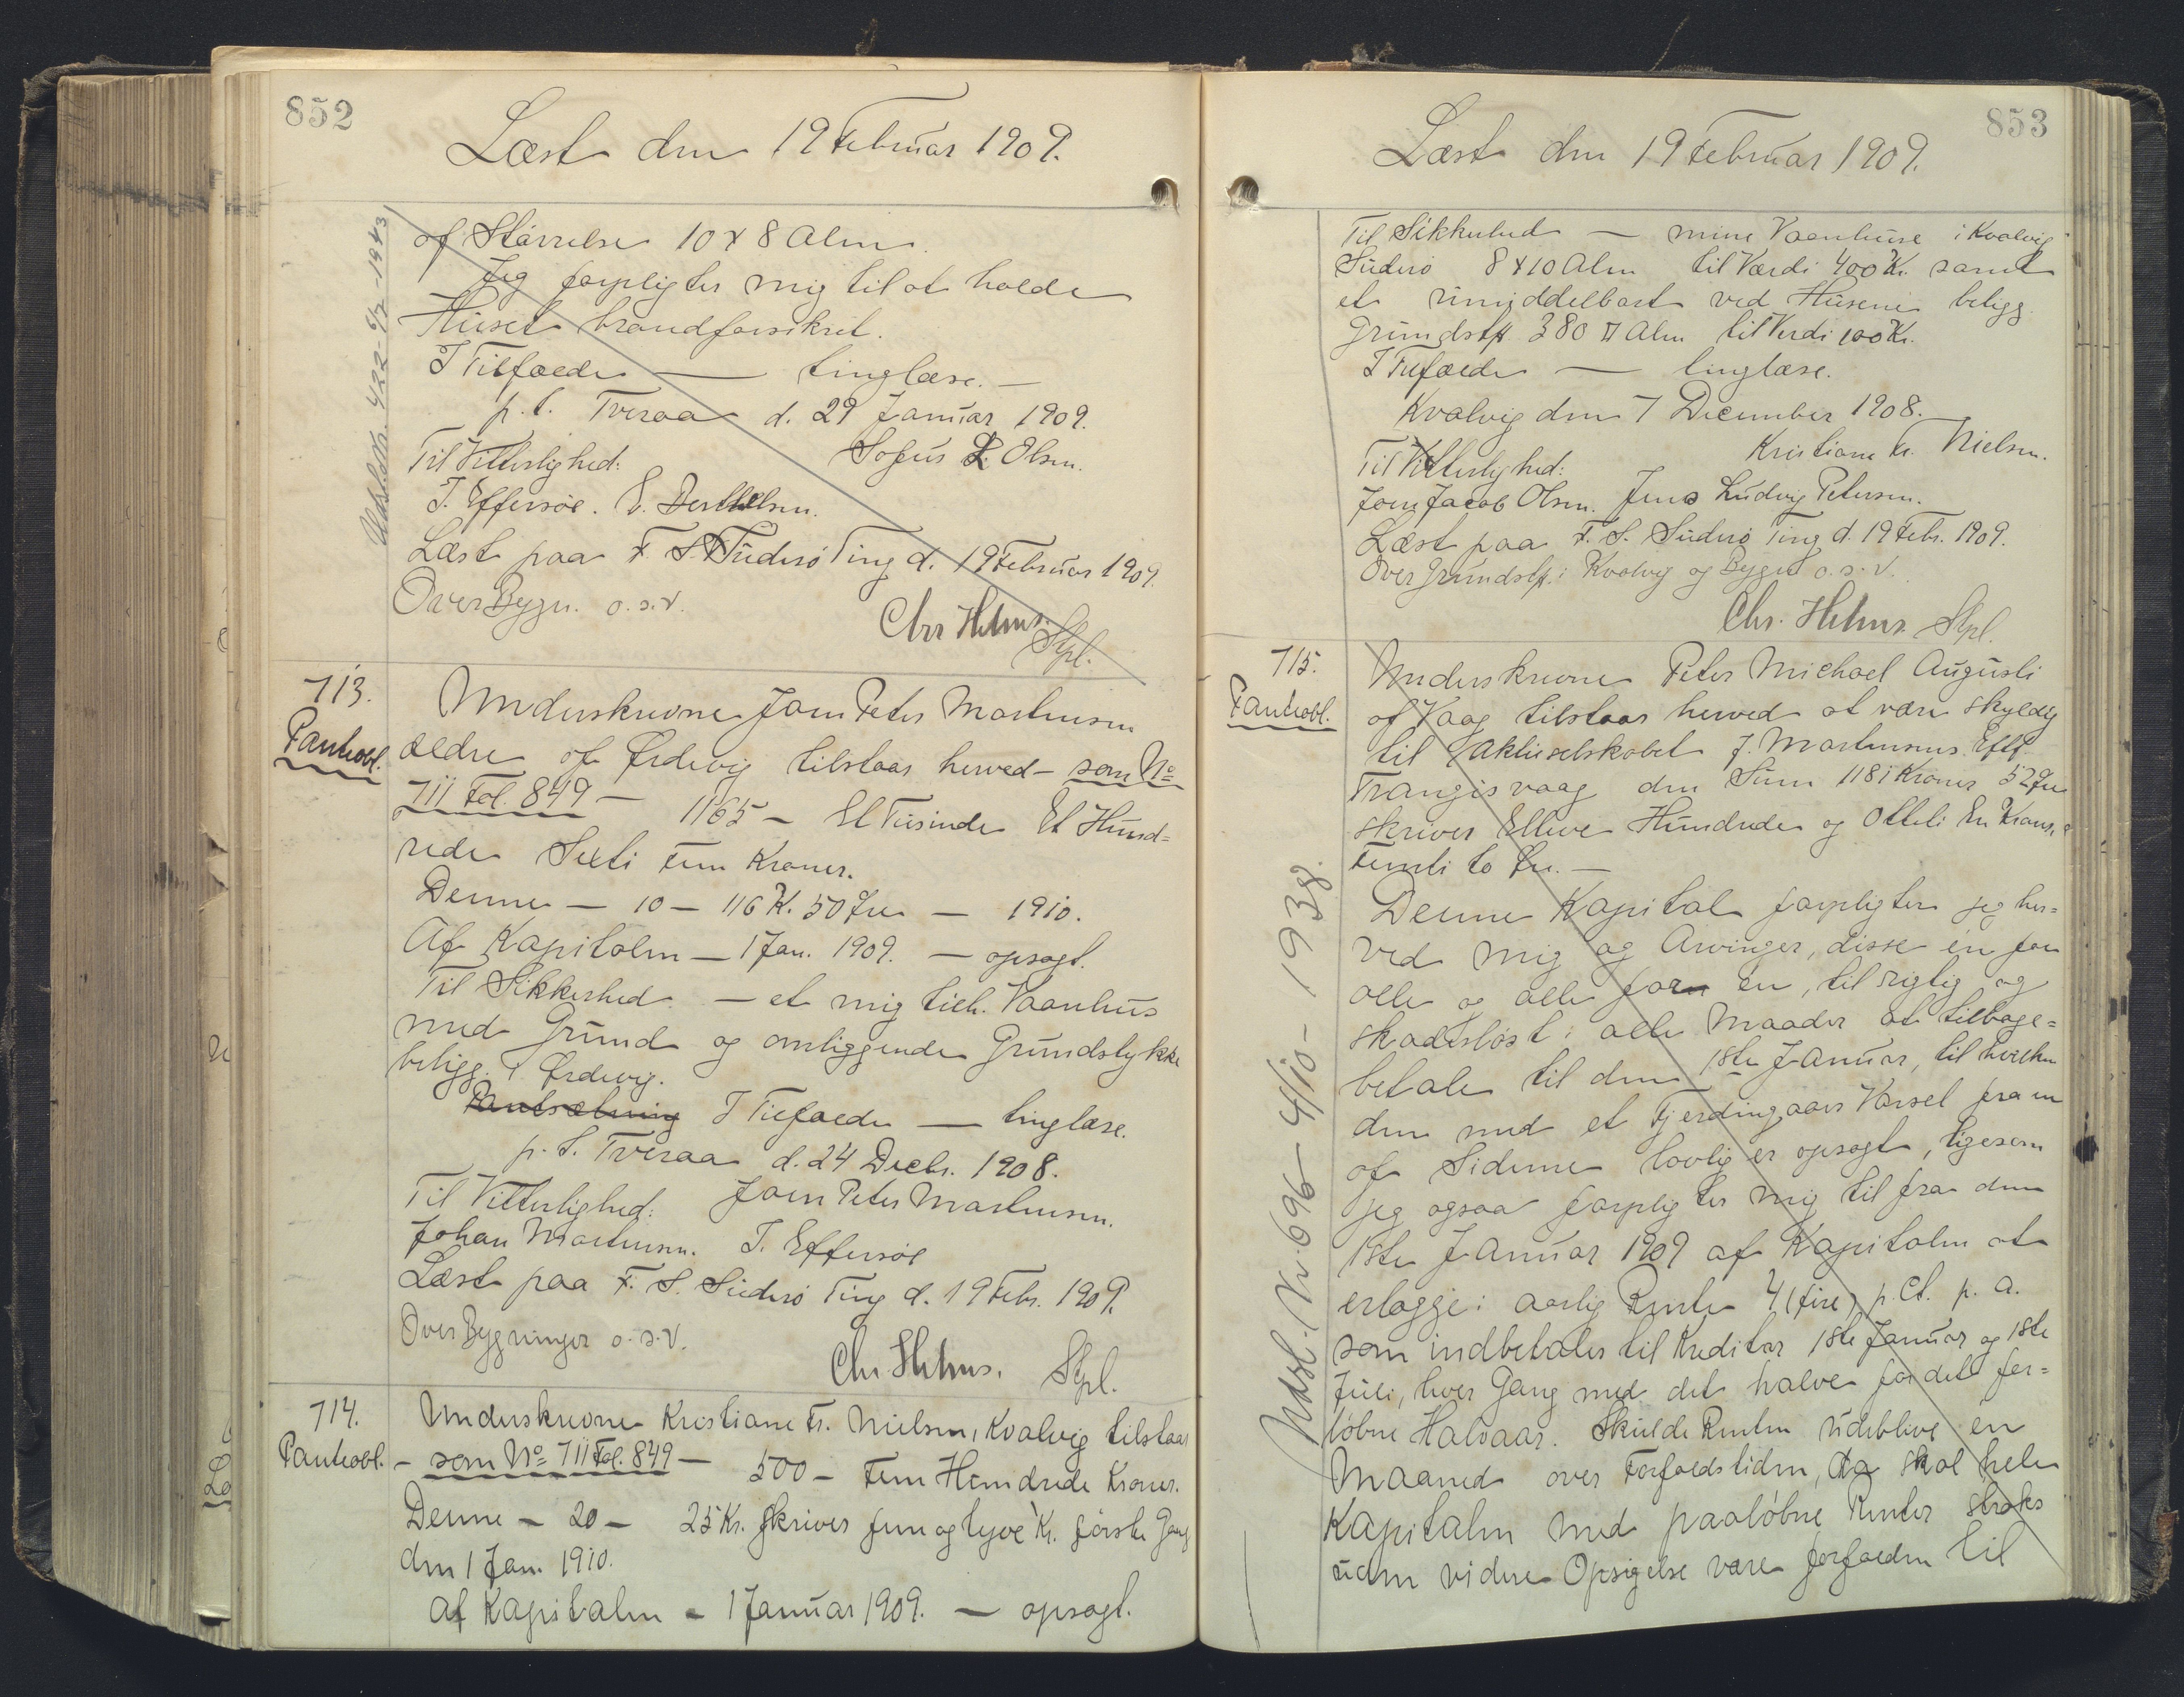 852
Læst den 19 Februar 1909.
Udsl. Nr. 422 - 6/7 - 1943
af Størrelse 10 x 8 Alen.
Jeg forpligter mig til at holde
Huset brandforsikret.
I Tilfælde — tinglæse. —
p. t. Tveraa d. 29 Januar 1909.
Til Vitterlighed: Sofus L. Olsen.
J. Effersøe.
Læst paa F. S. Suderø Ting d. 19 Februar 1909.
Over Bygn. o.s.v.
Chr Helms. Spl.
713.
Pantobl.
Underskrevne Joen Peter Mortensen
ældre af Ørdevig tilstaar herved - som No
711 Fol. 849 — 1165 - Et Tusinde Et Hund=
rede Sexti fem Kroner.
Denne — 10 — 116 K. 50 Øre — 1910.
Af Kapitalen — 1 Jan. 1909. — opsagt.
Til Sikkerhed — et mig tilh. Vaanhus
med Grund og omliggende Grundstykke
beligg. i Ørdevig.
Pantsætning I Tilfælde — tinglæse.
p. t. Tveraa d. 24 Decbr. 1908.
Til Vitterlighed: Joen Peter Mortensen.
Johan Mortensen. J. Effersøe
Læst paa F. S. Suderø Ting d. 19 Febr. 1909.
Over Bygninger o.s.v.
Chr Helms. Spl.
714.
Pantobl.
Underskrevne Kristiane Fr. Nielsen, Kvalvig tilstaar
- som No 711 Fol. 849 — 500 - Fem Hundrede Kroner.
Denne - 20 - 25 Kr. skriver fem og tyve Kr. første Gang
den 1 Jan. 1910.
Af Kapitalen - 1 Januar 1909. — opsagt.
853
Læst den 19 Februar 1909.
Til Sikkerhed — mine Vaanhuse i Kvalvig
Suderø 8 x 10 Alen til Værdi 400 Kr. samt
et umiddelbart ved Husene beligg.
Grundstk 380 □ Alen til Verdi 100 Kr.
I Tilfælde — tinglæse.
Kvalvig den 7 December 1908.
Kristiane Fr. Nielsen.
Til Vitterlighed:
Joen Jacob Olsen. Jens Ludvig Petersen.
Læst paa F. S. Suderø Ting d. 19 Febr. 1909.
Over Grundstk. i Kvalvig og Bygn o.s.v.
Chr. Helms. Spl.
715.
Pantobl.
Udsl. Nr. 696 - 4/10 - 1938.
Underskrevne Peter Michael Augusti
af Vaag tilstaar herved at være skyldig
til Aktieselskabet J. Mortensens Eftf.
Trangisvaag den Sum 1181 Kroner 52 Øre
skriver Elleve Hundrede og Otteti En Kroner
femti to Øre. —
Denne Kapital forpligter jeg her=
ved mig og Arvinger, disse én for
alle og alle for én, til rigtig og
skadesløst i alle Maader at tilbage=
betale til den 1ste Januar, til hvilken
den med et Fjerdingaars Varsel fra en
af Siderne lovlig er opsagt, ligesom
jeg ogsaa forpligter mig til fra den
1ste Januar 1909 af Kapitalen at
erlægge i aarlig Rente 4 (fire) p. Ct. p. a.
som indbetales til Kreditor 1ste Januar og 1ste
Juli, hver Gang med det halve for det for=
løbne Halvaar. Skulde Renten udeblive én
Maaned over Forfaldstiden, da skal hele
Kapitalen med paaløbne Renter straks
uden videre Opsigelse være forfalden til